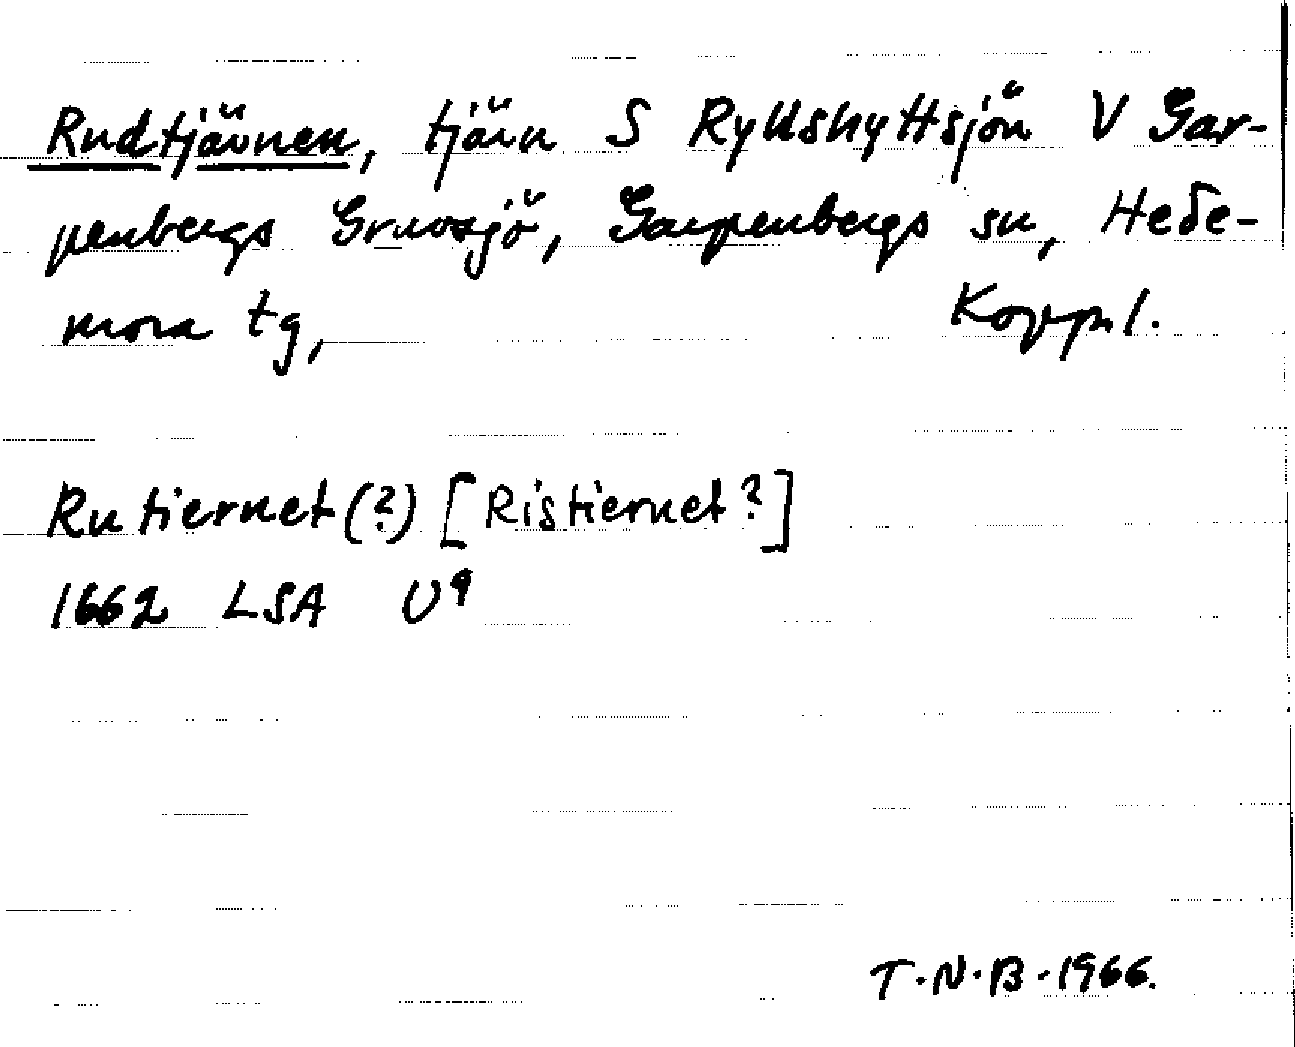 Rudtjärnen, tjärn S Ryllshyttsjön V Gar-
penbergs Gruvsjö, Garpenbergs sn, Hede-
mora tg, Kopp.l.
Rutiernet(?) [Ristiernet?]
1662 LSA U9
T.N.B. 1966.